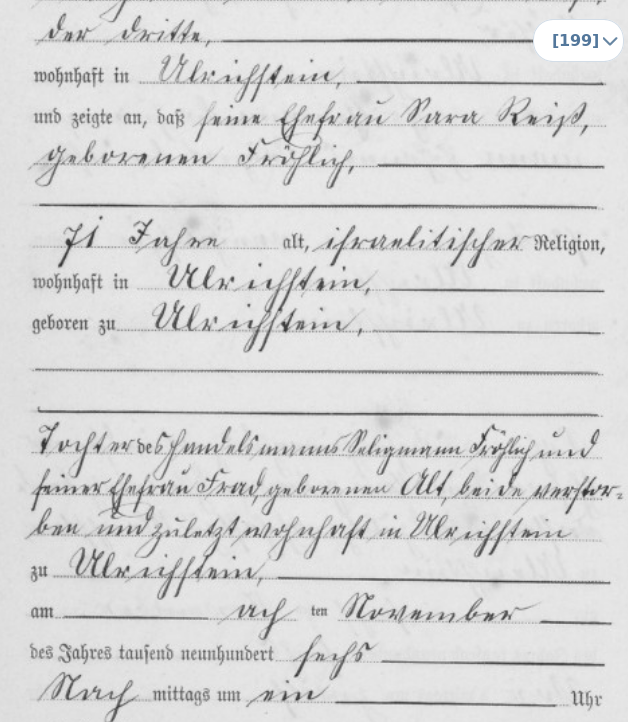 [199]
der dritte,
wohnhaft in Ulrichstein,
und zeigte an, daß seine Ehefrau Sara Reiß,
geborenen Fröhlich,
71 Jahre alt, israelitischer Religion,
wohnhaft in Ulrichstein,
geboren zu Ulrichstein,
Tochter des Handelsmanns Seligmann Fröhlich und
seiner Ehefrau Frad, geborenen Alt, beide verstor-
ben und zuletzt wohnhaft in Ulrichstein
zu Ulrichstein,
am ach ten November
des Jahres tausend neunhundert sechs
Nach mittags um ein Uhr